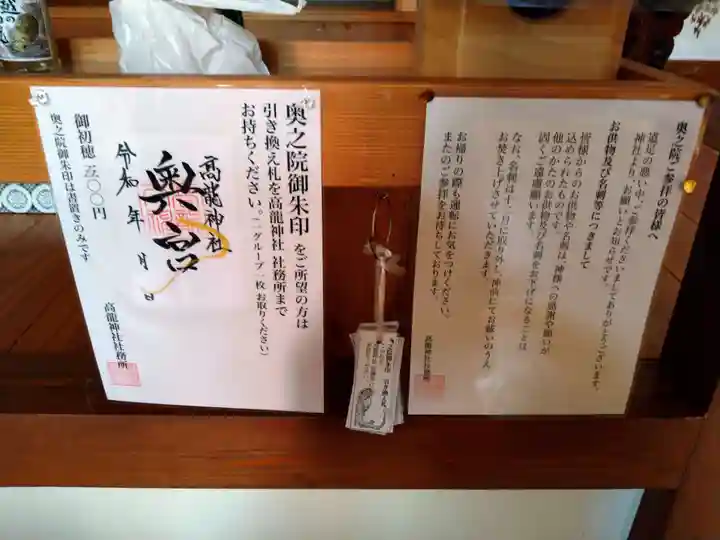 奥之院御朱印をご所望の方は
引き換え札を高龍神社 社務所まで
お持ちください。(一グループ一枚お取りください)
高龍神社
奥宮
令和 年 月 日
高龍神社社務所
御初穂 五〇〇円
奥之院御朱印は書置きのみです
奥之院ご参拝の皆様へ
遠足の悪い中、ご参拝くださいましてありがとうございます。
神社より、お願いとお知らせです。
お供物及び名刺等につきまして
皆様からのお供物や名刺は、神様への感謝や願いが
込められたものです。
他のかたのお供物及び名刺をお下げになることは
固くご遠慮願います。
なお、名刺は十二月に取り外し、神前にてお祓いのうえ
お焚き上げさせていただきます。
お帰りの際も運転にお気をつけください。
またのご参拝をお待ちしております。
高龍神社社務所